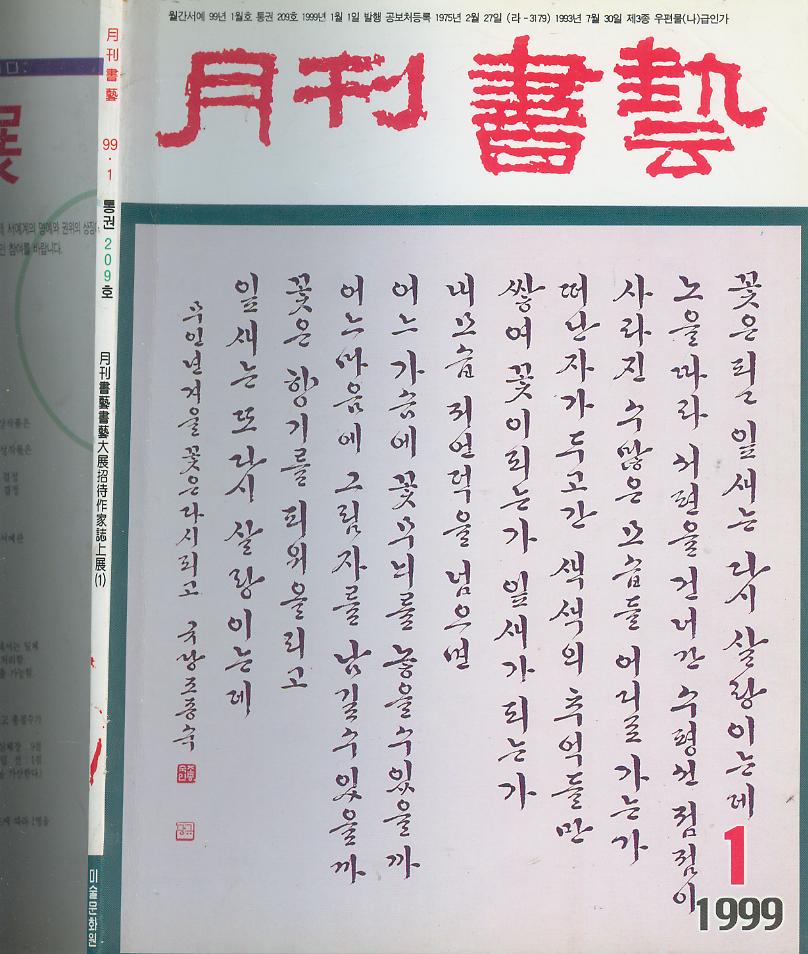 월간서예 99년 1월호 통권 209호 1999년 1월 1일 발행 공보처등록 1975년 2월 27일 (라-3179) 1993년 7월 30일 제3종 우편물(나)급인가
月刊 書藝
꽃은 피고 잎새는 다시 살랑이는데
노을 따라 서편을 건너간 수평선 점점이
사라진 수많은 모습들 어디로 가는가
떠난 자가 두고 간 색색의 추억들만
쌓여 꽃이 되는가 잎새가 되는가
내 모습 저 언덕을 넘으면
어느 가슴에 꽃무늬를 놓을 수 있을까
어느 마음에 그림자를 남길 수 있을까
꽃은 향기를 피워 올리고
잎새는 또 다시 살랑이는데
무인년 겨울 꽃은 다시 피고 조종숙
1
1999
月刊書藝
99·1
통권 209호
月刊書藝書藝大展招待作家誌上展(1)
미술문화원
서예계의 명예와 권위의 상징
참여를 바랍니다.